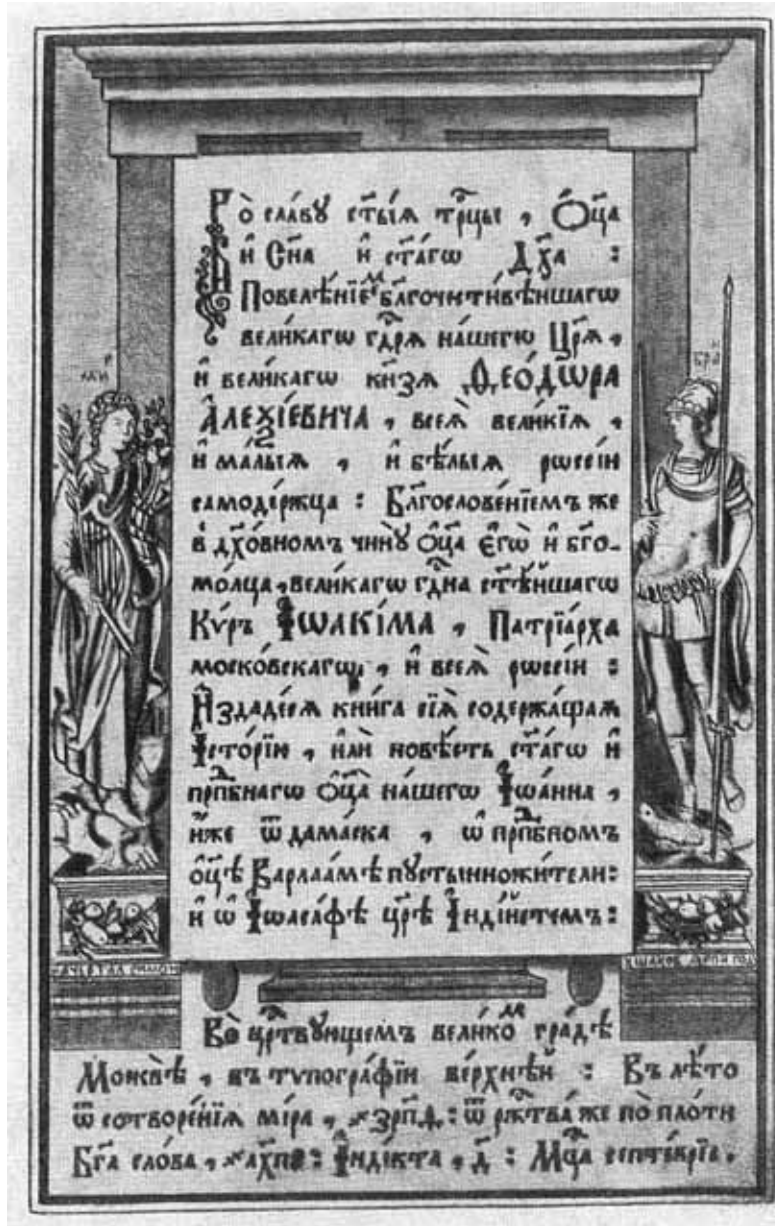 Во̀ сла́ву ст҃ы́ѧ трⷪ҇цы , Ѻ҆ц҃а̀
и҆ Сн҃а и҆ ст҃а́гѡ Дх҃а :
Повелѣ́нїеⷨ бл҃гочⷭ҇ти́вѣйшагѡ
вели́кагѡ гдⷭ҇рѧ на́шегѡ Цр҃ѧ̀ ,
и҆ вели́кагѡ кн҃зѧ Ѳ̲ео́дѡра
А҆ЛЕѮІ́ЕВИЧА , всеѧ̀ вели́кїѧ ,
и҆ ма́лыѧ , и҆ бѣ́лыѧ рѡссі́и
самоде́ржца : Бл҃гослове́нїемъ же
в̾ дх҃о́вномъ чи́ну ѻ҆ц҃а̀ є҆гѡ̀ и҆ бг҃о-
мо́лца , вели́кагѡ гдⷭ҇на ст҃ѣ́йшагѡ
Кѵ́ръ І҆ѡАКІ́МА , Патрїа́рха
моско́вскагѡ , и҆ всеѧ̀ рѡссі́и :
И҆здаде́сѧ кни́га сїѧ̀ содержа́щаѧ
І҆сто́рїю , и҆лѝ повѣ́сть ст҃а́гѡ и҆
прпⷣбнагѡ ѻ҆ц҃а̀ на́шегѡ І҆ѡа́нна ,
и҆́же ѿ дама́ска , ѡ҆ прпⷣбномъ
ѻ҆ц҃ѣ̀ Варлаа́мѣ пустынножи́тели :
и҆ ѡ҆ І҆ѡаса́фѣ цр҃ѣ̀ І҆нді́йстемъ :
миⷬ
браⷩ
начертал симон
ꙋшаков
Во̀ црⷭ҇твующемъ вели́коⷨ гра́дѣ
Москвѣ̀ , въ тѵпогра́фїи ве́рхнѣй : Въ лѣ́то
ѿ сотворе́нїѧ мі́ра , ҂зрп҃ѳ : ѿ ржⷭ҇тва́ же по̀ пло́ти
Бг҃а сло́ва , ҂ахп҃ : І҆ндікта , д҃ : Мцⷭ҇а септе́врїѧ .